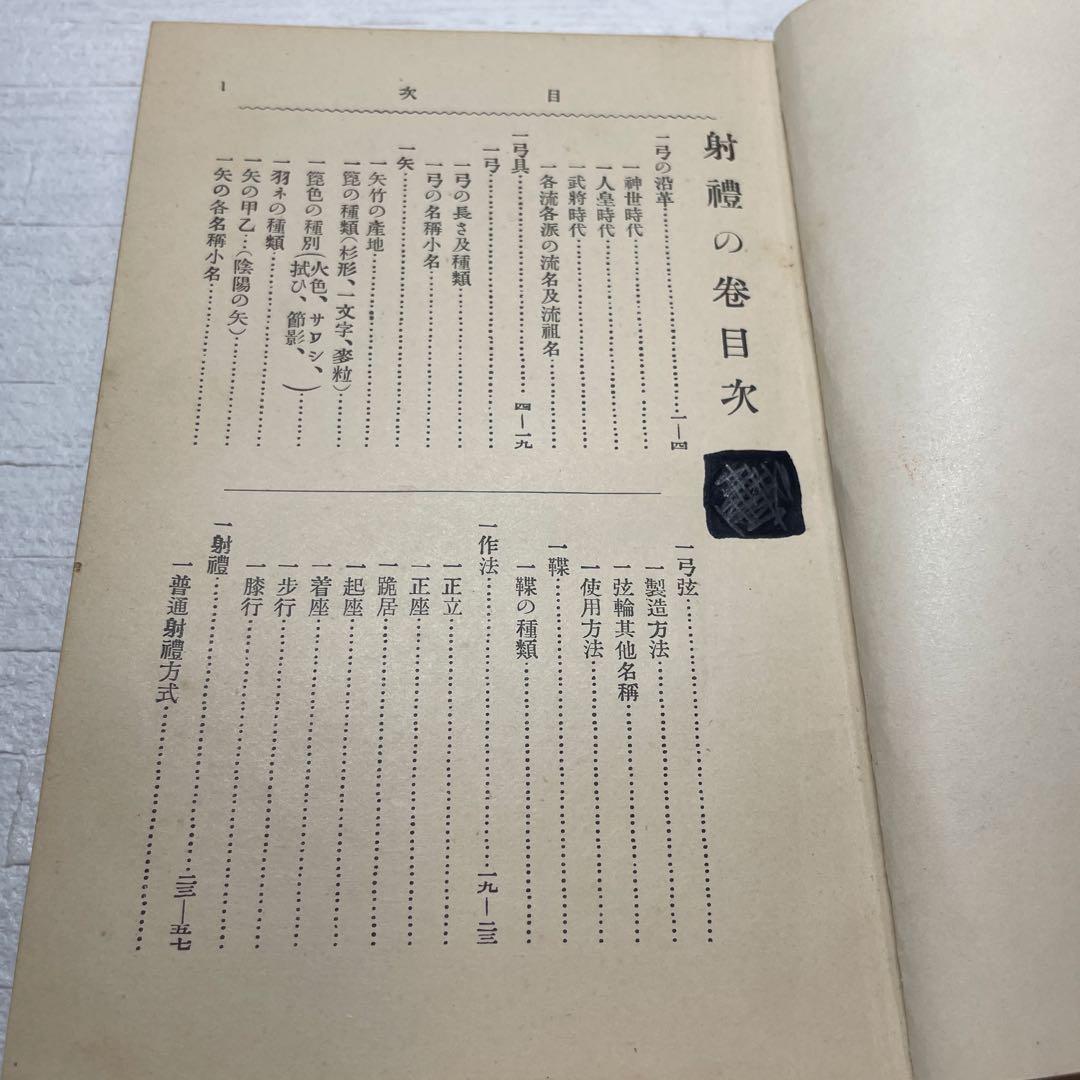 目次
1
射禮の卷目次
一弓の沿革……………………一—四
一神世時代……………………
一人皇時代……………………
一武將時代……………………
一各流各派の流名及流祖名……………………
一弓具……………………四—一九
一弓……………………
一弓の長さ及種類……………………
一弓の名稱小名……………………
一矢……………………
一矢竹の產地……………………
一箆の種類(杉形、一文字、麥粒)……………………
一箆色の種別(火色、サワシ、拭ひ、節影、)……………………
一羽ネの種類……………………
一矢の甲乙…(陰陽の矢)……………………
一矢の各名稱小名……………………
一弓弦……………………
一製造方法……………………
一弦輪其他名稱……………………
一使用方法……………………
一鞢……………………
一鞢の種類……………………
一作法……………………一九—二三
一正立……………………
一正座……………………
一跪居……………………
一起座……………………
一着座……………………
一步行……………………
一膝行……………………
一射禮……………………二三—五七
一普通射禮方式……………………